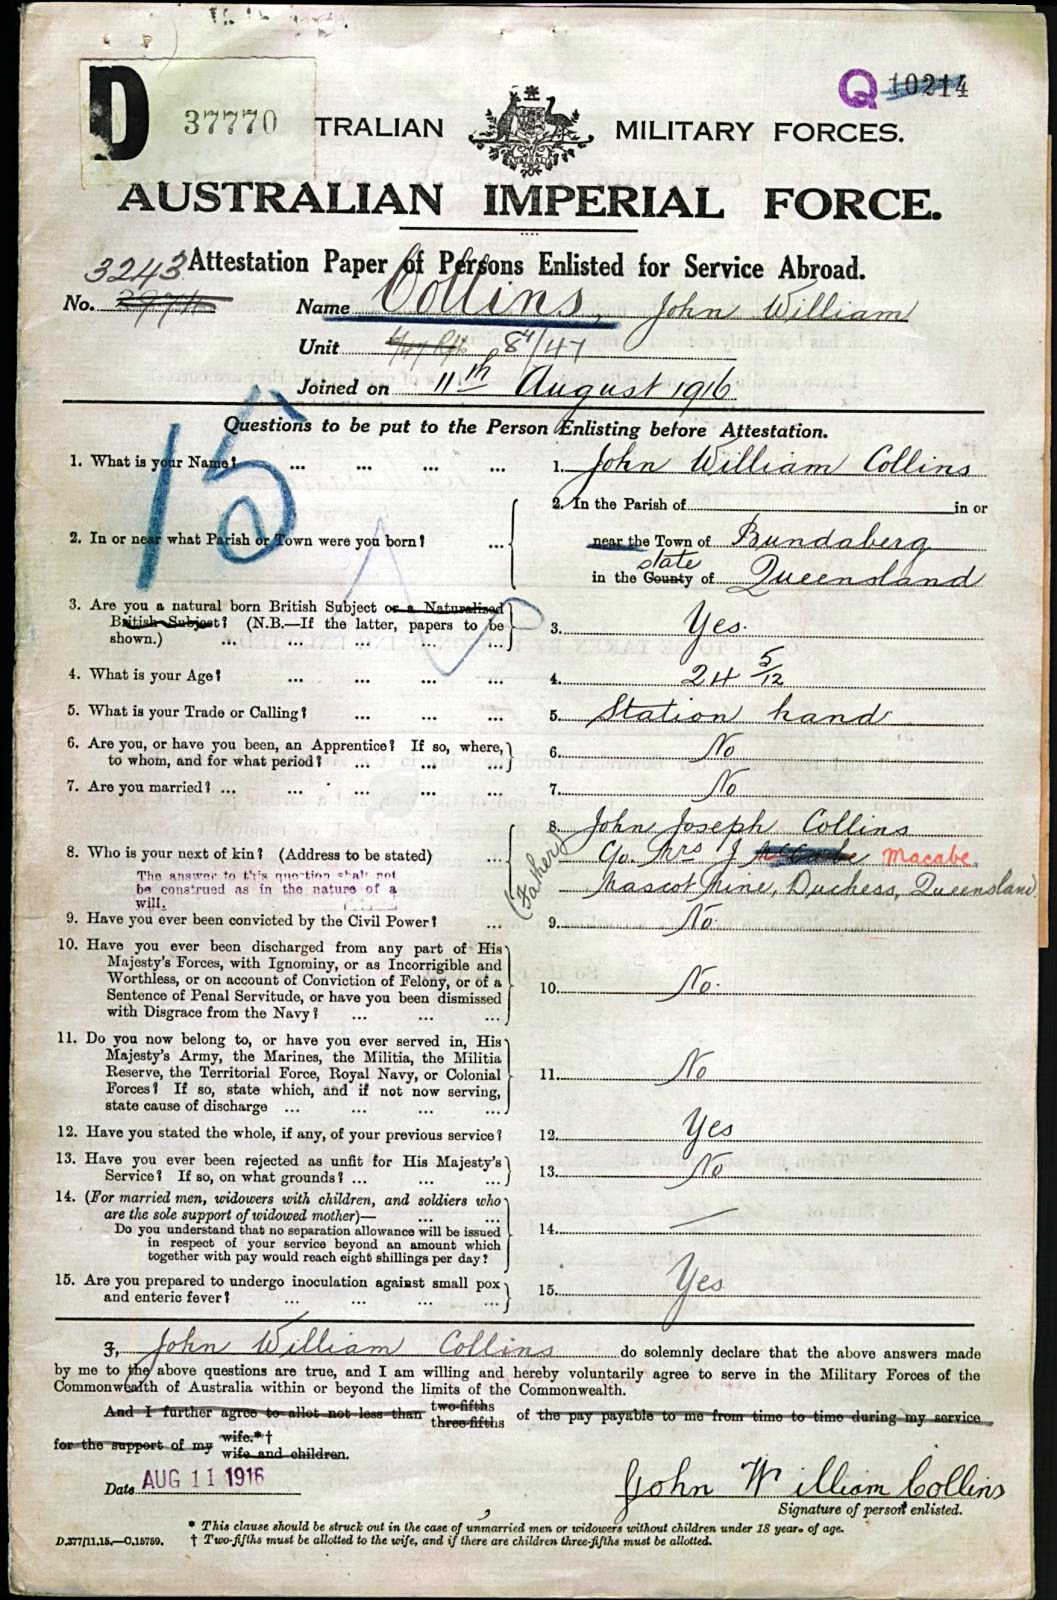 D 37770
Q 10214
TRALIAN MILITARY FORCES.
AUSTRALIAN IMPERIAL FORCE.
Attestation Paper of Persons Enlisted for Service Abroad.
3243
No. Name Collins, John William
Unit 8th/47
Joined on 11th August 1916
15
Questions to be put to the Person Enlisting before Attestation.
1. What is your Name? ... ... ... ... 1. John William Collins
2. In or near what Parish or Town were you born? ... 2. In the Parish of in or
near the Town of Bundaberg
state
in the County of Queensland
3. Are you a natural born British Subject or a Naturalised
British Subject? (N.B.—If the latter, papers to be
shown.) ... ... ... ... ... 3. Yes.
4. What is your Age? ... ... ... ... 4. 24 5/12
5. What is your Trade or Calling? ... ... ... 5. Station hand
6. Are you, or have you been, an Apprentice? If so, where,
to whom, and for what period? ... ... ... 6. No
7. Are you married? ... ... ... ... ... 7. No
8. Who is your next of kin? (Address to be stated) ... 8. John Joseph Collins
c/o. Mrs J McCabe Macabe.
Mascot Mine, Duchess, Queensland
(Faher)
The answer to this question shall not
be construed as in the nature of a
will.
9. Have you ever been convicted by the Civil Power? ... 9. No.
10. Have you ever been discharged from any part of His
Majesty's Forces, with Ignominy, or as Incorrigible and
Worthless, or on account of Conviction of Felony, or of a
Sentence of Penal Servitude, or have you been dismissed
with Disgrace from the Navy? ... ... ... 10. No.
11. Do you now belong to, or have you ever served in, His
Majesty's Army, the Marines, the Militia, the Militia
Reserve, the Territorial Force, Royal Navy, or Colonial
Forces? If so, state which, and if not now serving,
state cause of discharge ... ... ... ... 11. No
12. Have you stated the whole, if any, of your previous service? 12. Yes
13. Have you ever been rejected as unfit for His Majesty's
Service? If so, on what grounds? ... ... ... 13. No
14. (For married men, widowers with children, and soldiers who
are the sole support of widowed mother)— ... ...
Do you understand that no separation allowance will be issued
in respect of your service beyond an amount which
together with pay would reach eight shillings per day? 14. —
15. Are you prepared to undergo inoculation against small pox
and enteric fever? ... ... ... ... 15. Yes
I, John William Collins do solemnly declare that the above answers made
by me to the above questions are true, and I am willing and hereby voluntarily agree to serve in the Military Forces of the
Commonwealth of Australia within or beyond the limits of the Commonwealth.
And I further agree to allot not less than two-fifths three-fifths of the pay payable to me from time to time during my service
for the support of my wife.*† wife and children.
Date AUG 11 1916
John William Collins
Signature of person enlisted.
* This clause should be struck out in the case of unmarried men or widowers without children under 18 years of age.
D.377/11.15.—C.15759. † Two-fifths must be allotted to the wife, and if there are children three-fifths must be allotted.